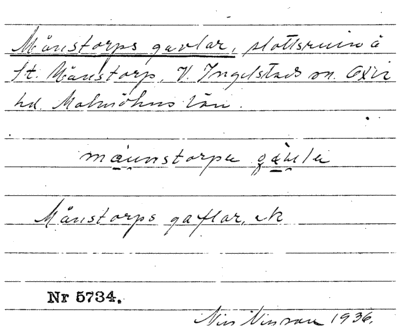 Månstorps gavlar, slottsruin å
St. Månstorp, V. Ingelstads sn. Oxie
hd. Malmöhus län.
månnstorpa gàvla
Månstorps gaflar, ek
Nr 5734.
Nils Nilsson 1936.